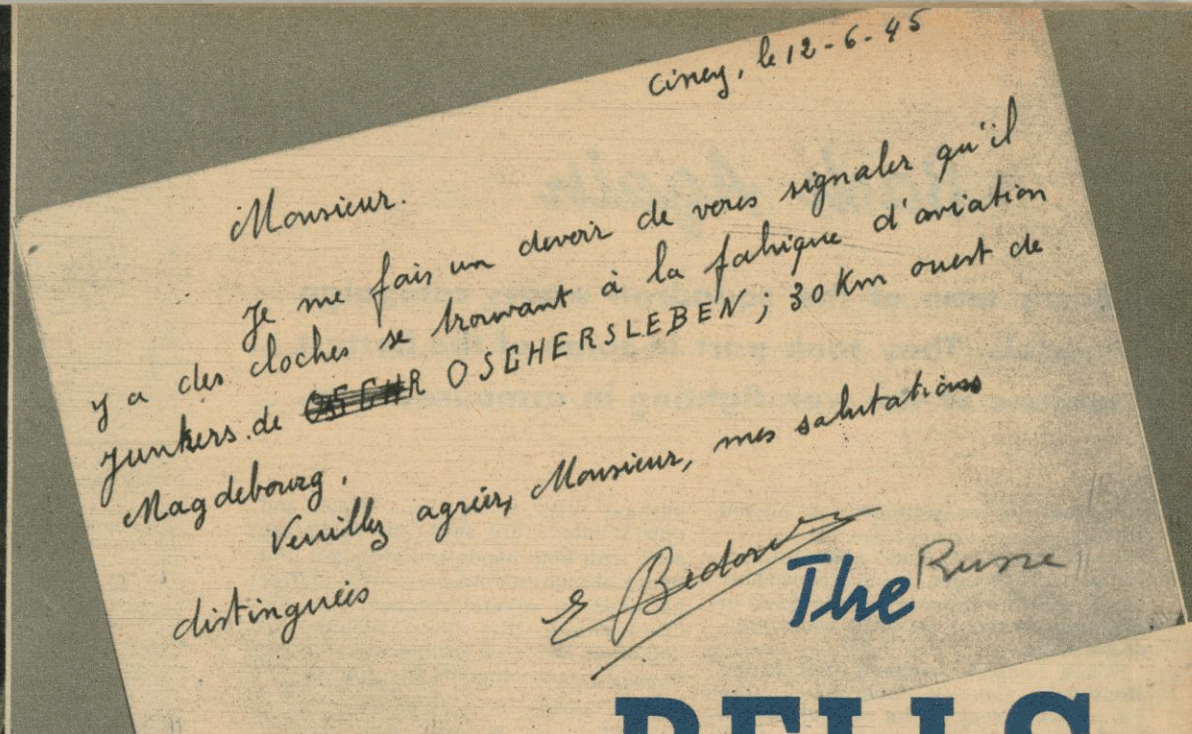 Ciney, le 12-6-45
Monsieur.
Je me fais un devoir de vous signaler qu'il
y a des cloches se trouvant à la fabrique d'aviation
Junkers de OSCHERSLEBEN, 30 Km ouest de
Magdebourg.
Veuillez agréer, Monsieur, mes salutations
distinguées
The
BELLS